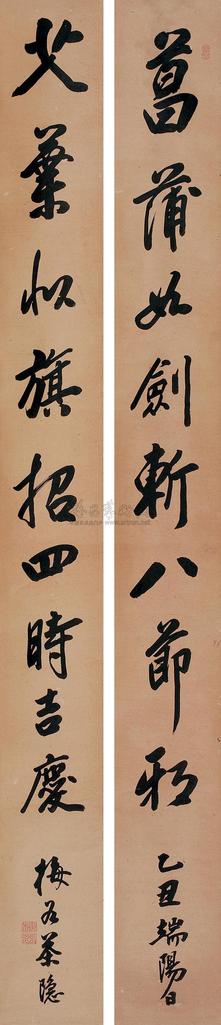 菖蒲如劍斬八節邪
乙丑端陽日
艾葉似旗招四時吉慶
梅茶隱